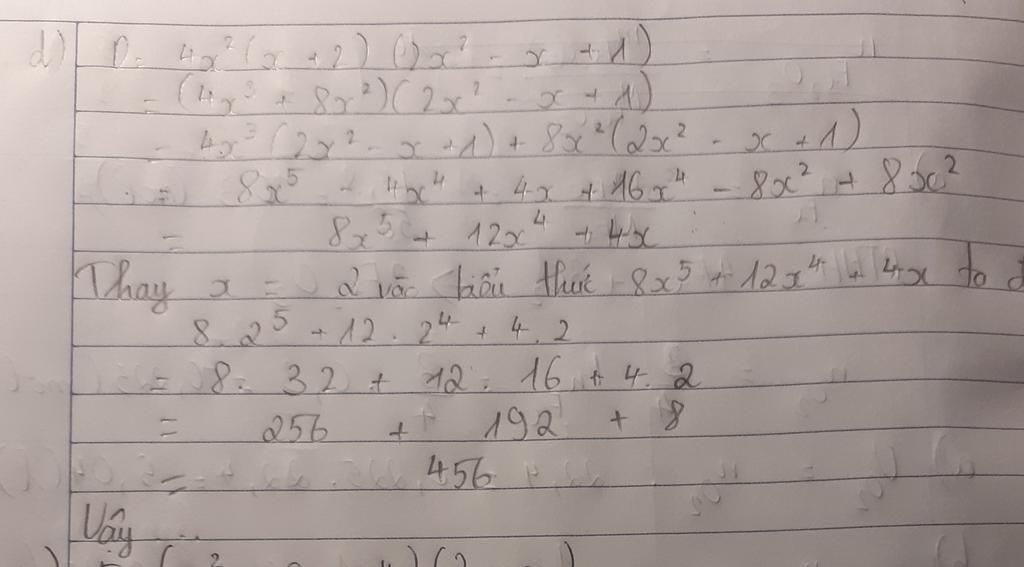 d) D = 4x²(x + 2)(2x² - x + 1)
= (4x³ + 8x²)(2x² - x + 1)
= 4x³(2x² - x + 1) + 8x²(2x² - x + 1)
= 8x⁵ - 4x⁴ + 4x + 16x⁴ - 8x² + 8x²
= 8x⁵ + 12x⁴ + 4x
Thay x = 2 vào biểu thức 8x⁵ + 12x⁴ + 4x ta
8.2⁵ + 12.2⁴ + 4.2
= 8.32 + 12.16 + 4.2
= 256 + 192 + 8
= 456
Vậy ...